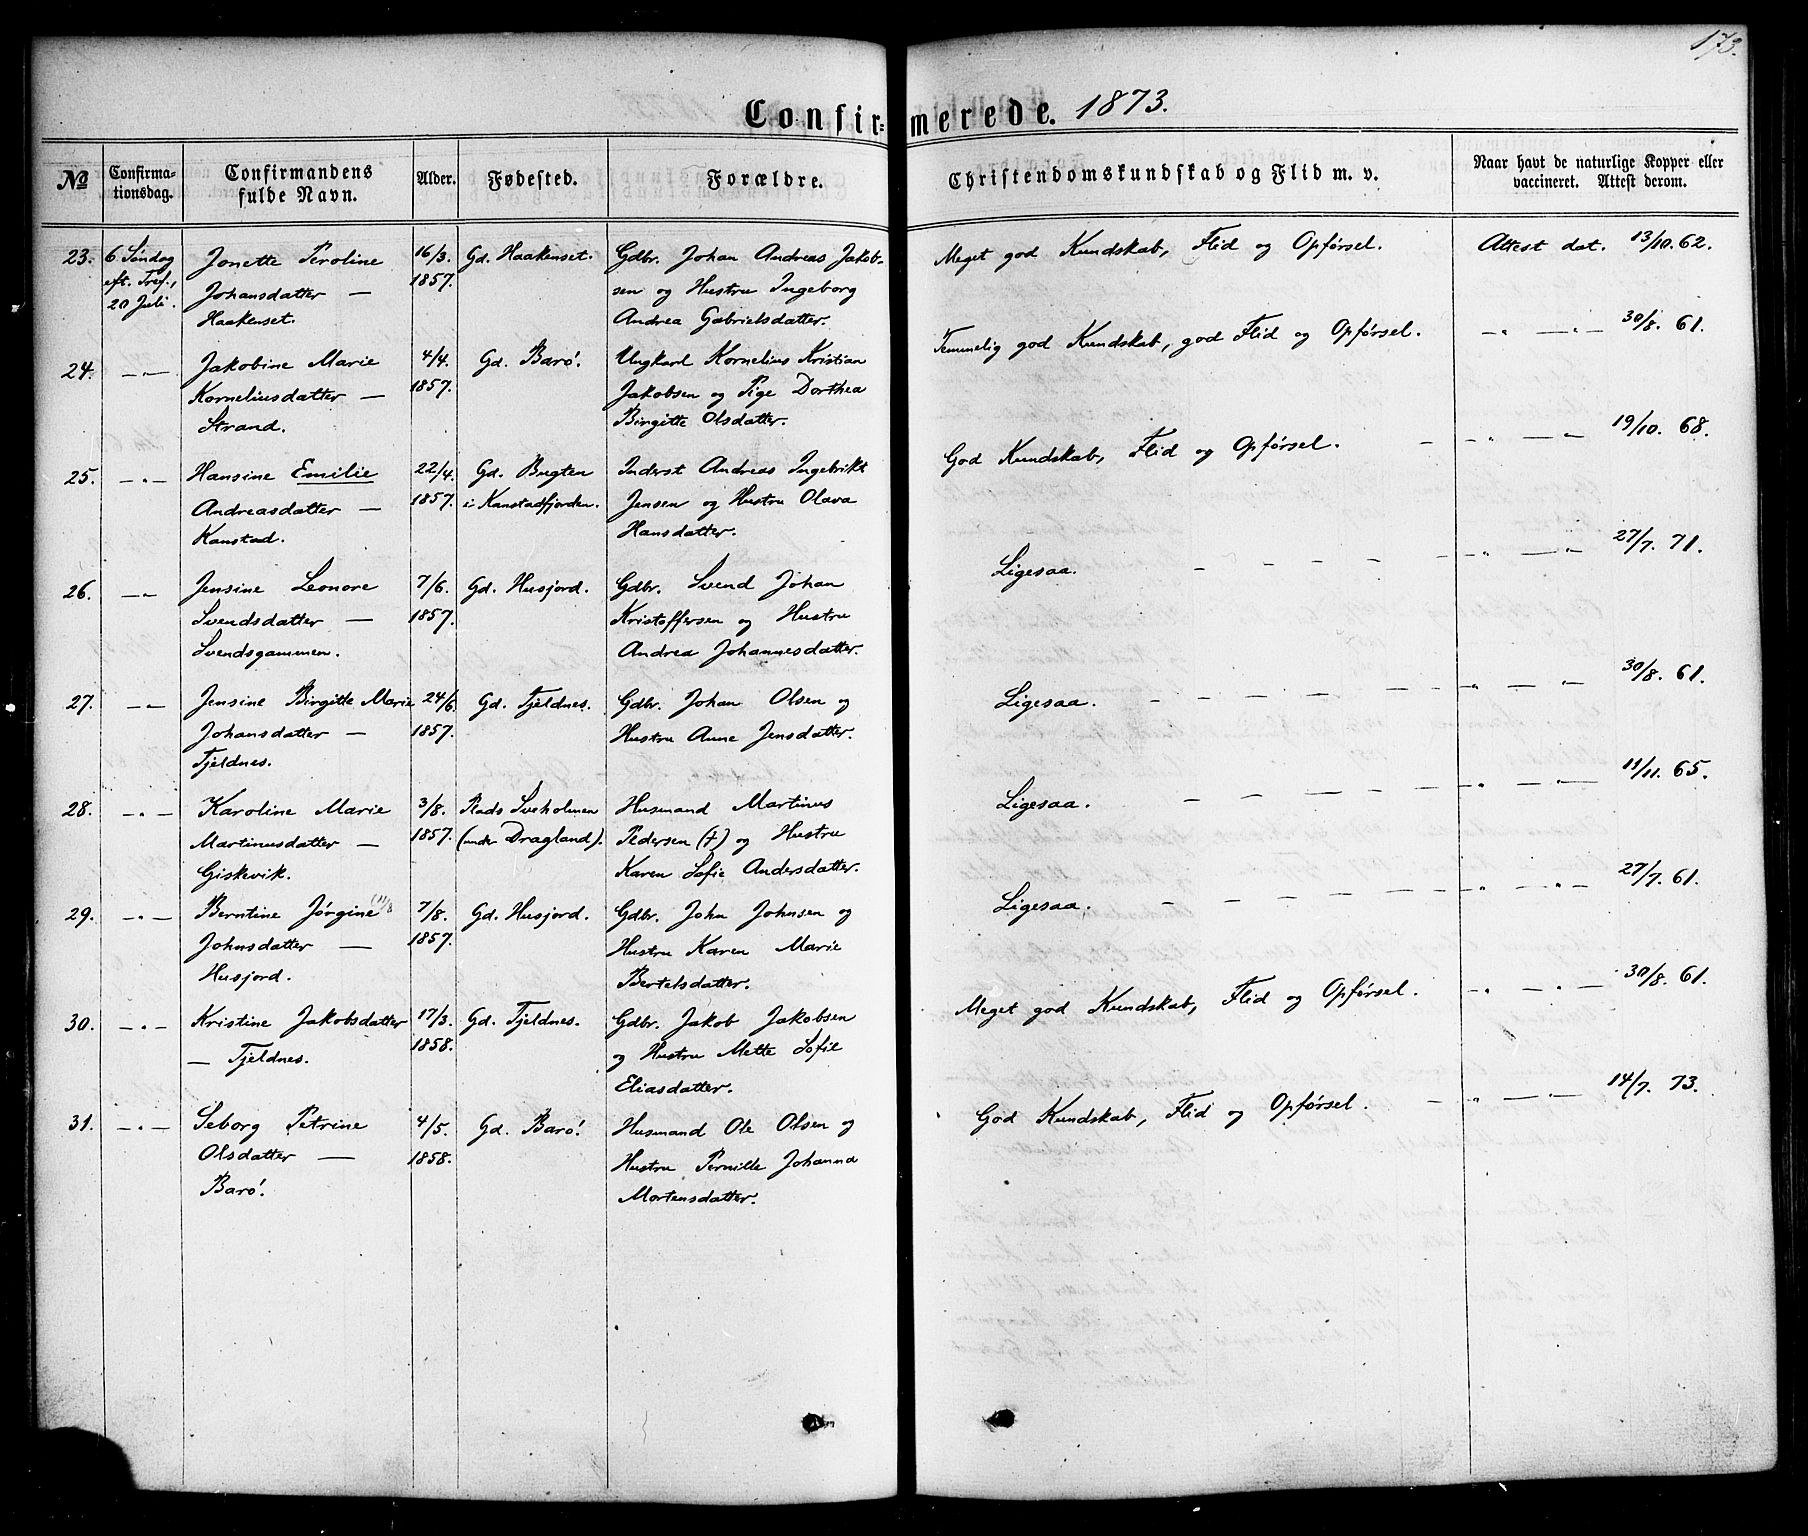 173.
Confir= merede. 1873.
No
Confirma-
tionsdag.
Confirmandens
fulde Navn.
Alder.
Fødested.
Forældre.
Christendomskundskab og Flid m. v.
Naar havt de naturlige Kopper eller
vaccineret. Attest derom.
23. 6 Søndag Jonette Peroline 16/3. Gd. Haakenset. Gdbr. Johan Andreas Jakob- Meget god Kundskab, Flid og Opførsel. Attest dat. 13/10. 62.
eft. Tref., Johansdatter — 1857. sen og Hustru Ingeborg
20 Juli. Haakenset. Andrea Gabrielsdatter.
24. —„— Jakobine Marie 4/4. Gd. Barø. Ungkarl Kornelius Kristian Temmelig god Kundskab, god Flid og Opførsel. —„— —„— 30/8. 61.
Korneliusdatter — 1857. Jakobsen og Pige Dorthea
Strand. Birgitte Olsdatter.
25. —„— Hansine Emilie 22/4. Gd. Bugten Inderst Andreas Ingebrikt God Kundskab, Flid og Opførsel. — —„— —„— 19/10. 68.
Andreasdatter — 1857. i Kanstadfjorden. Jensen og Hustru Olava
Kanstad. Hansdatter.
26. —„— Jensine Leonore 7/6. Gd. Husjord. Gdbr. Svend Johan Ligesaa. — — — — —„— —„— 27/7. 71.
Svendsdatter — 1857. Kristoffersen og Hustru
Svendsgammen. Andrea Johannesdatter.
27. —„— Jensine Birgitte Marie 24/6. Gd. Tjeldnes. Gdbr. Johan Olsen og Ligesaa. — — — — —„— —„— 30/8. 61.
Johansdatter — 1857. Hustru Anne Jensdatter.
Tjeldnes.
28. —„— Karoline Marie 3/8. Plads Sveholmen Husmand Martinus Ligesaa. — — — — —„— —„— 11/11. 65.
Martinusdatter — 1857. (under Dragland). Pedersen (†) og Hustru
Giskevik. Karen Sofie Andersdatter.
29. —„— Berntine Jørgine 7/8. Gd. Husjord. Gdbr. John Johnsen og Ligesaa. — — — — —„— —„— 27/7. 61.
Johnsdatter — 1857. Hustru Karen Marie
Husjord. Bertelsdatter.
30. —„— Kristine Jakobsdatter 17/3. Gd. Tjeldnes. Gdbr. Jakob Jakobsen Meget god Kundskab, Flid og Opførsel. —„— —„— 30/8. 61.
— Tjeldnes. 1858. og Hustru Mette Sofie
Eliasdatter.
31. —„— Seborg Petrine 4/5. Gd. Barø. Husmand Ole Olsen og God Kundskab, Flid og Opførsel. — —„— —„— 14/7. 73.
Olsdatter — 1858. Hustru Pernille Johanna
Barø. Mortensdatter.